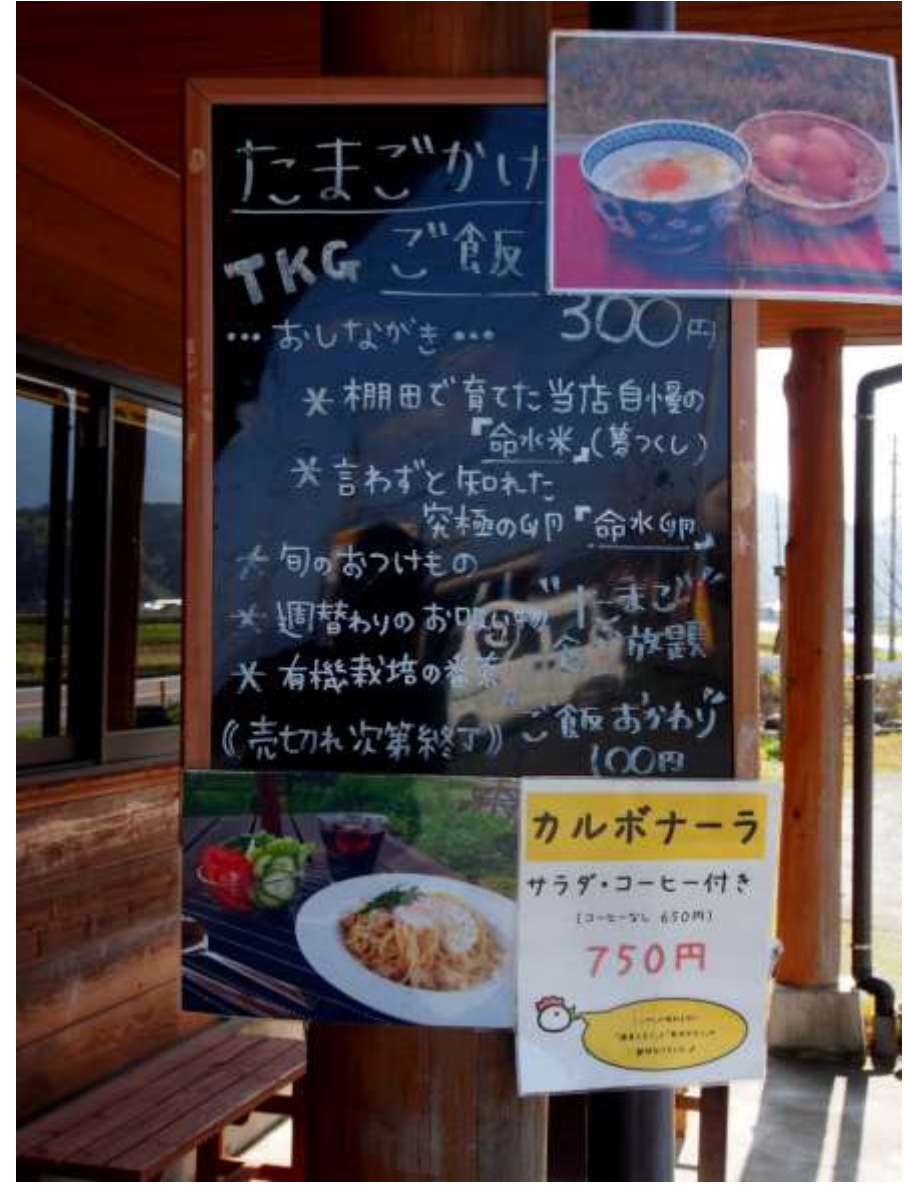 たまごかけ
TKG ご飯
… おしながき … 300円
* 棚田で育てた当店自慢の
『命水米』(夢つくし)
* 言わずと知れた
究極の卵『命水卵』
* 旬のおつけもの
* 週替わりのお吸い物
* 有機栽培の番茶
たまご
食べ放題
《売切れ次第終了》
ご飯おかわり
100円
カルボナーラ
サラダ・コーヒー付き
(コーヒーなし 650円)
750円